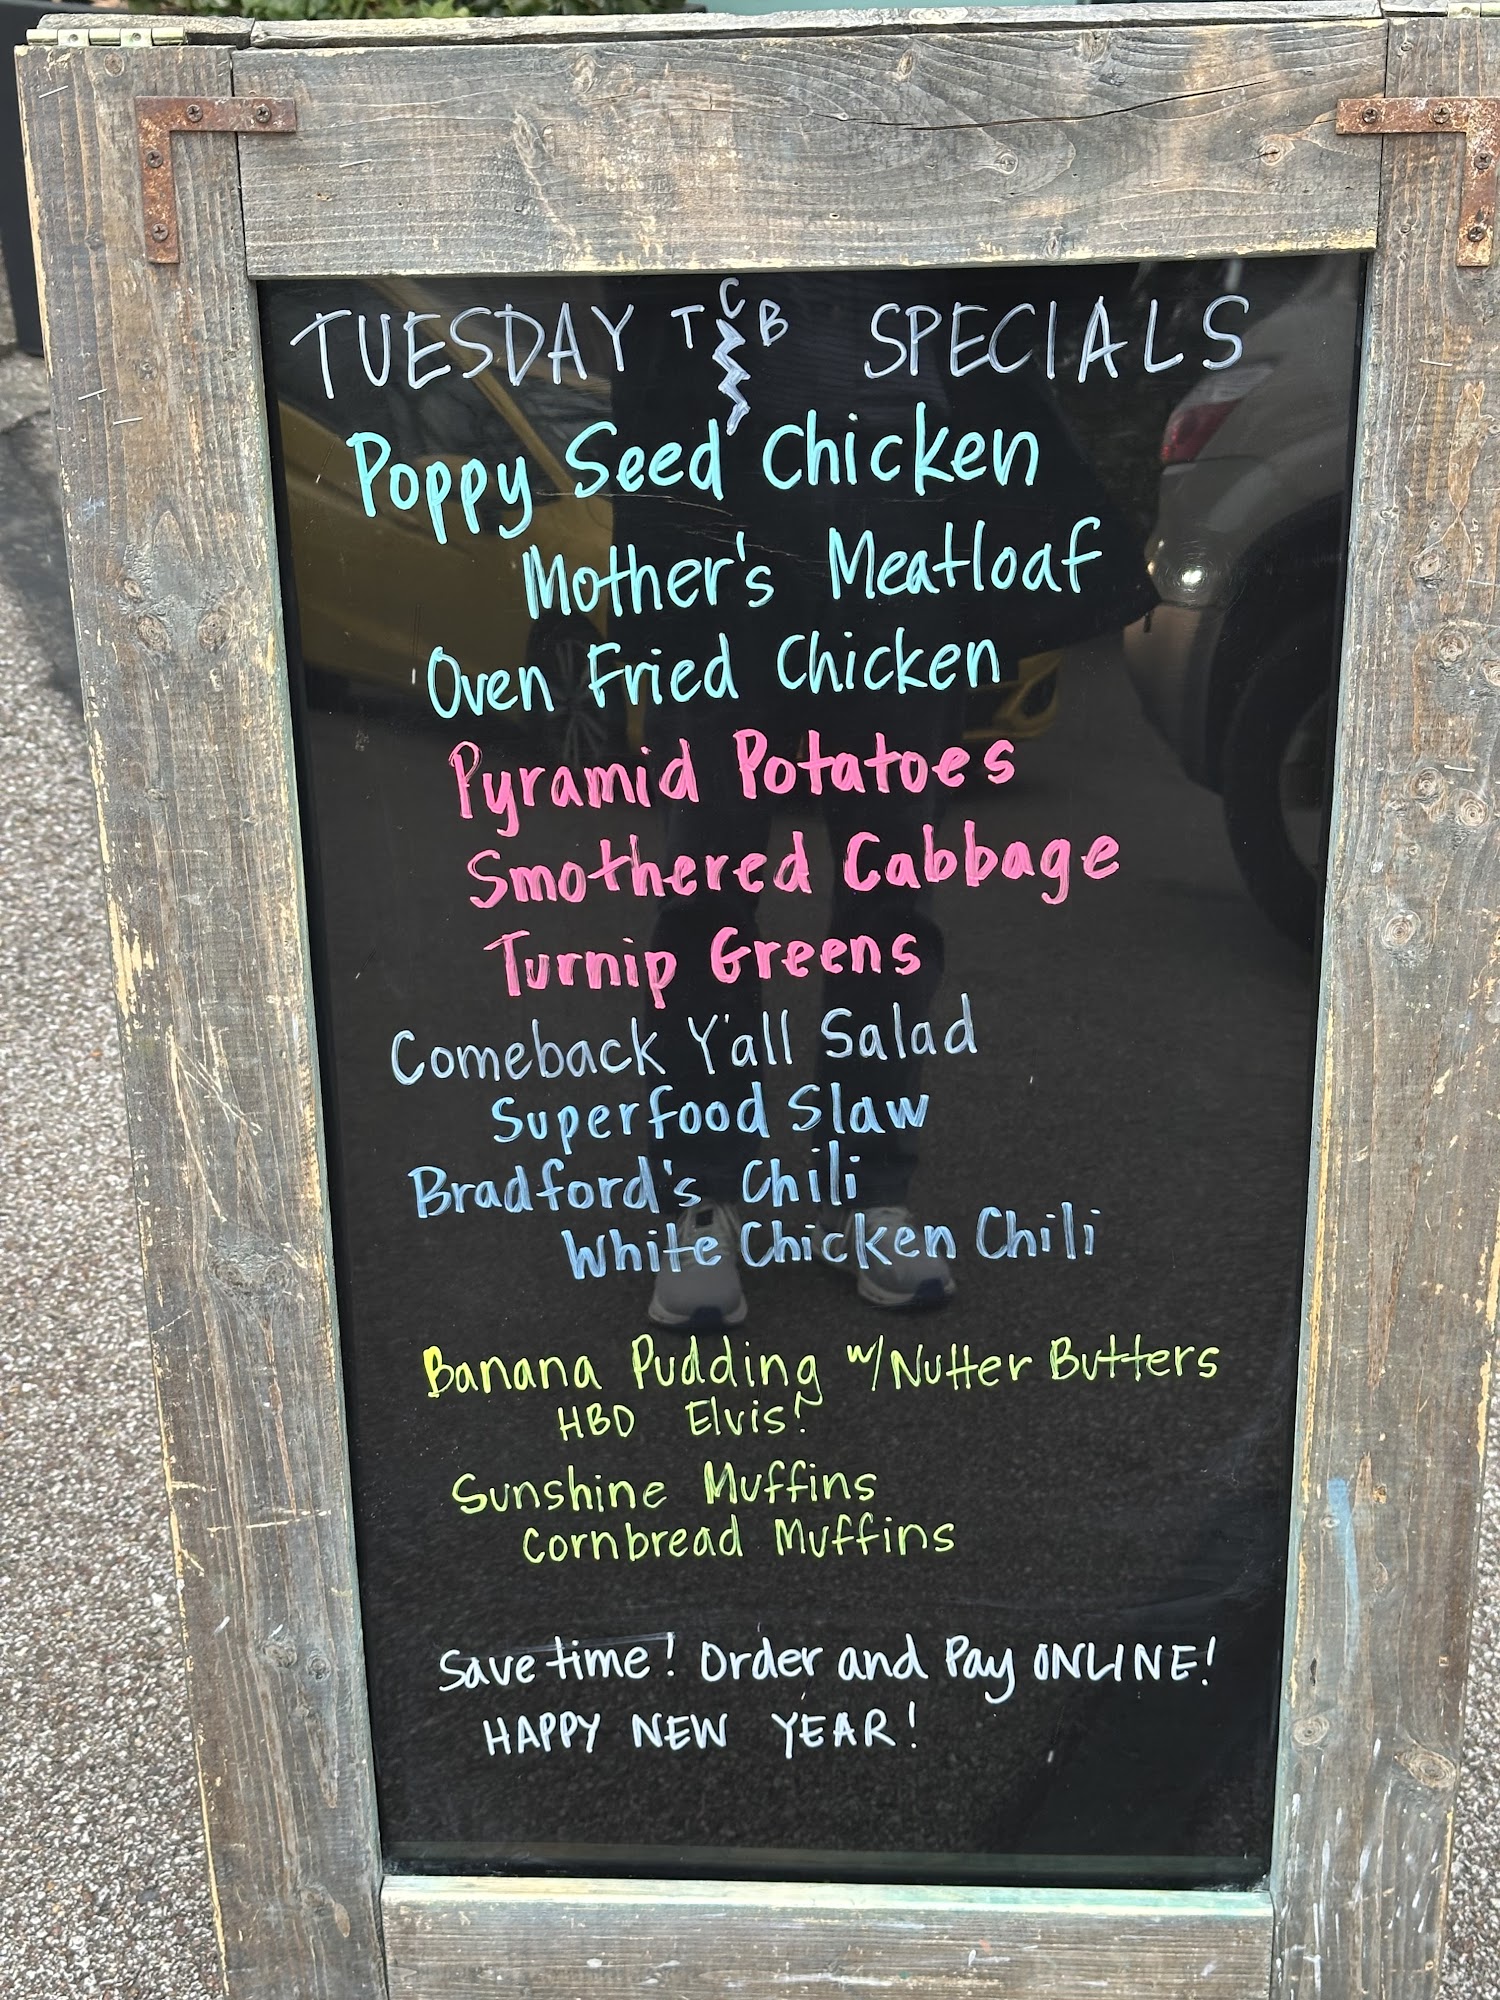 TUESDAY TCB SPECIALS
Poppy Seed Chicken
Mother's Meatloaf
Oven Fried Chicken
Pyramid Potatoes
Smothered Cabbage
Turnip Greens
Comeback Y'all Salad
Superfood Slaw
Bradford's Chili
White Chicken Chili
Banana Pudding w/Nutter Butters
HBD Elvis!
Sunshine Muffins
Cornbread Muffins
Save time! Order and Pay ONLINE!
HAPPY NEW YEAR!